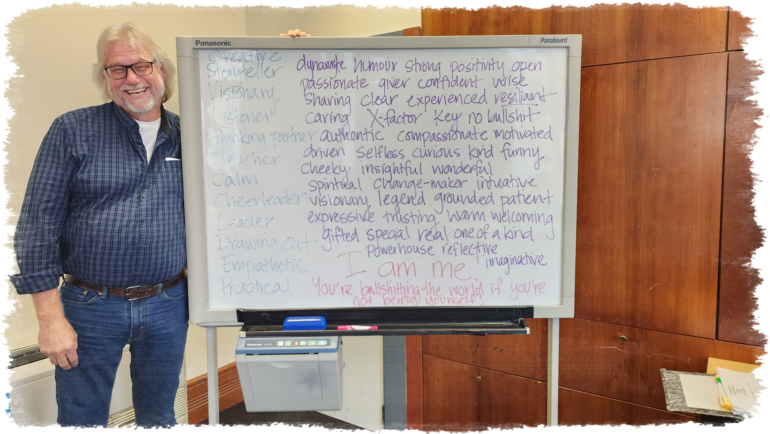 Panasonic
Panaboard
Creative
Storyteller
Visionary
Listener
Thinking partner
Teacher
Calm
Cheerleader
Leader
Drawing out
Empathetic
Practical
dynamite humour strong positivity open
passionate giver confident wise
sharing clear experienced resiliant
caring X-factor key no bullshit
authentic compassionate motivated
driven selfless curious kind funny
cheeky insightful wonderful
spiritual change-maker intuative
visionary legend grounded patient
expressive trusting warm welcoming
gifted special real one of a kind
powerhouse reflective
imaginative
I am me!
You're bullshitting the world if you're
not being yourself!